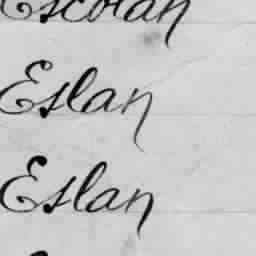 Escolan
Eslan
Eslan